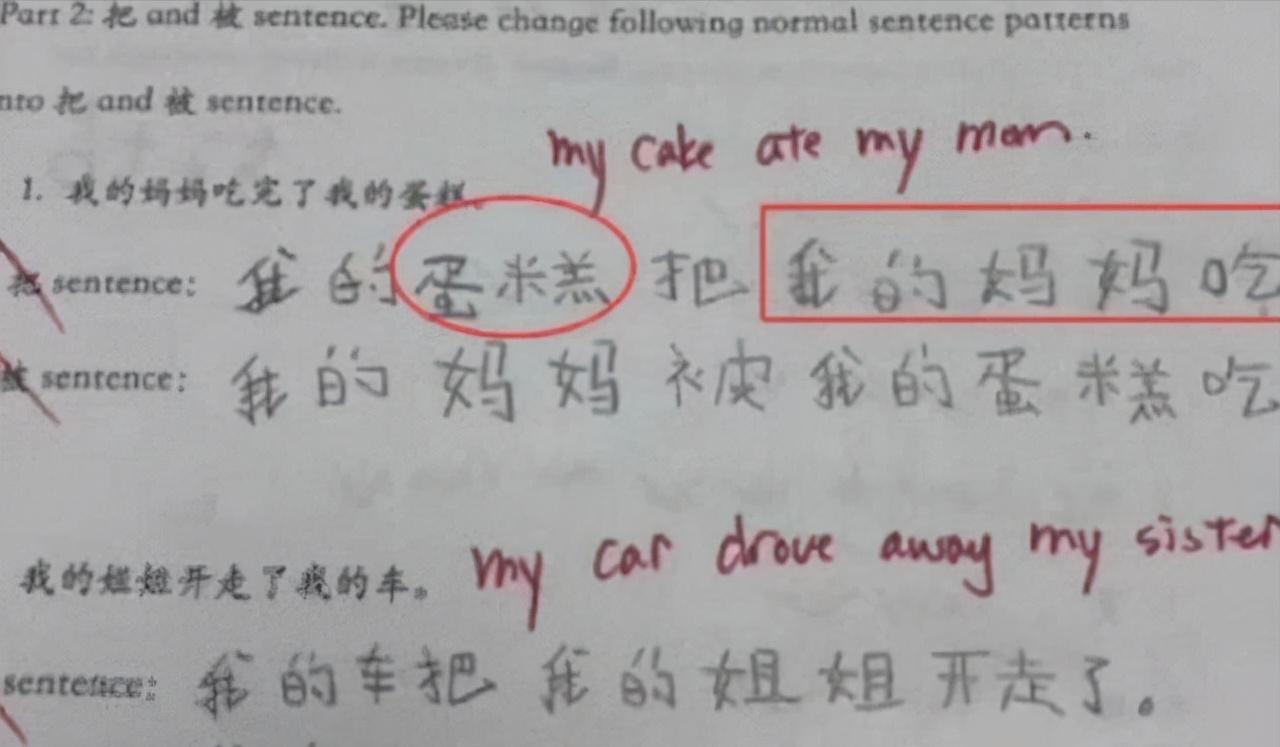 Part 2: 把 and 被 sentence. Please change following normal sentence patterns
nto 把 and 被 sentence.
my cake ate my mom.
1. 我的妈妈吃完了我的蛋糕。
把 sentence: 我的蛋糕把我的妈妈吃
被 sentence: 我的妈妈被我的蛋糕吃
我的姐姐开走了我的车。 my car drove away my sister
sentence: 我的车把我的姐姐开走了。